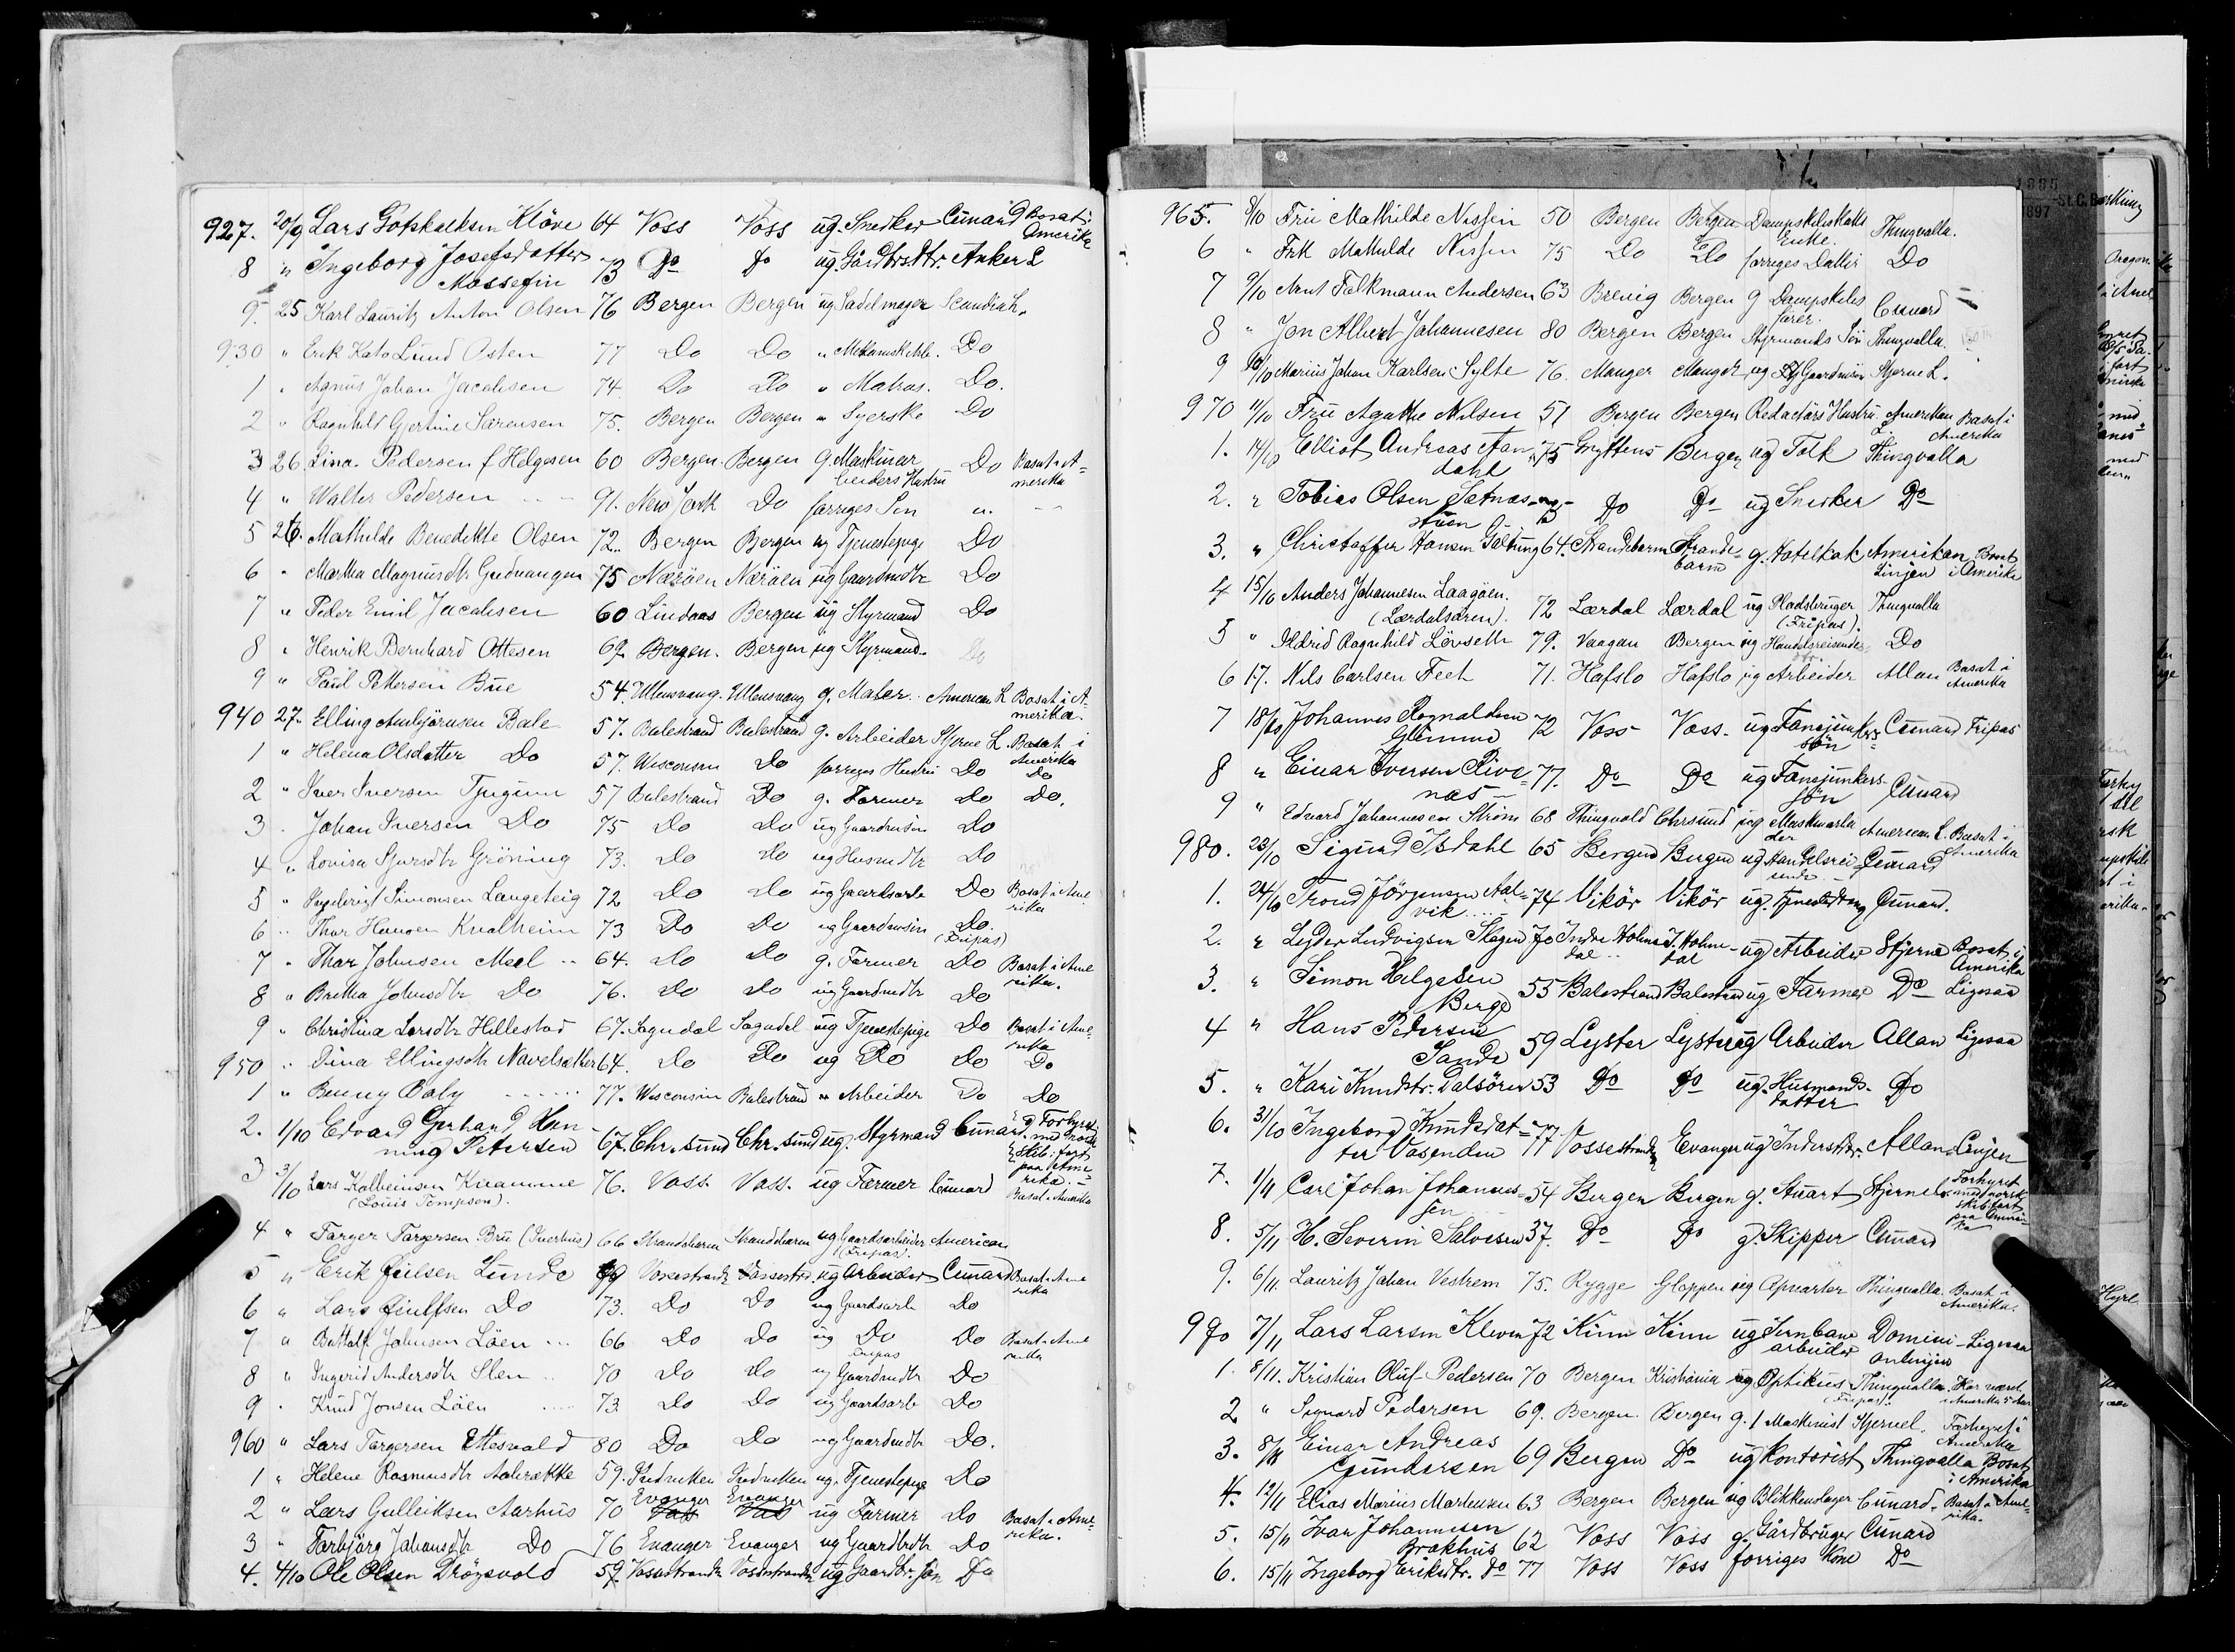 927. 20/9 Lars Gotskalksen Kløve 64 Voss Voss ug. Snedker Cunard Bosat i Amerika
8 " Ingeborg Josefsdatter Mossefin 73 Do Do ug. Gårdbrsdtr. Anker L
9. 25 Karl Lauritz Anton Olsen 76 Bergen Bergen ug Sadelmager Scandia L.
930 " Erik Kato Lund Osten 77 Do Do " Mekanisk Arb. Do
1 " Agnus Johan Jacobsen 74. Do Do " Matros. Do.
2 " Ragnhild Gjertine Sørensen 75. Bergen Bergen " Syerske Do
3 26 Lina Pedersen f Helgesen 60 Bergen Bergen g. Maskinarbeiders Hustru Do Bosat i Amerika
4 " Walter Pedersen 91. New York Do forriges Søn
5 26. Mathilde Benedikte Olsen 72. Bergen Bergen ug Tjenestepige Do
6 " Martha Magnusdtr Gudvangen 75 Nærøen Nærøen ug Gaardmdtr Do
7 " Peder Emil Jacobsen 60 Lindaas Bergen ug Styrmand Do
8 " Henrik Bernhard Ottesen 69 Bergen. Bergen ug Styrmand. Do
9 " Paul Pettersen Bue 54. Ullensvang. Ullensvang g. Maler. American L Bosat i Amerika.
940 27. Elling Ambjørnsen Bale 57. Balestrand Balestrand g. Arbeider Stjerne L. Bosat i Amerika
1 " Helena Olsdatter Do 57. Wisconsin Do forriges Hustru Do Do
2 " Iver Iversen Tjugum 57 Balestrand Do g. Farmer Do Do.
3 . Johan Iversen Do 75 Do Do ug Gaardmsøn Do
4 " Lovisa Sjursdtr Grøning 73. Do Do ug Husmdtr Do
5 " Ingebrigt Simonsen Langeteig 72 Do Do ug Gaardsarb Do Bosat i Amerika
6 " Thor Hansen Kvalheim 73 Do Do ug Gaardmsøn Do. (Fripas)
7 " Thor Johnsen Meel 64. Do Do g. Farmer Do Bosat i Amerika.
8 " Britha Johnsdtr Do 76. Do Do ug Gaardmdtr Do
9 " Christina Larsdtr Hillestad 67. Sogndal Sogndal ug Tjenestepige Do Bosat i Amerika
950 " Dina Ellingsdtr Navelsaker 64. Do Do ug Do Do Do
1 " Benny Baly 77. Wisconsin Balestrand " Arbeider Do Do
2. 1/10 Edvard Gerhard Henning Petersen 67. Chr.sund Chr.sund ug. Styrmand Cunard Forhyret med norsk skib i fart paa Amerika.
3 3/10 Lars Kolbeinsen Kvamme (Louis Tompson). 76. Voss. Voss. ug Farmer Cunard Bosat. Amerika
4 " Torger Torgersen Bru (Iverhus) 66 Strandebarm Strandebarm ug Gaardsarbeider (Fripas). American
5 " Erik Øielsen Lunde 69 Vossestrand Vossestrd. ug Arbeider Cunard Bosat i Amerika
6 " Lars Øiulfsen Do 73. Do Do ug Gaardsarb Do
7 " Bottolf Johnsen Løen 66 Do Do ug Do Fripas Do Bosat i Amerika
8 " Ingerid Andersdtr Slen 70 Do Do ug Gaardmdtr Do
9 . Knud Jonsen Løen 73. Do Do ug Gaardsarb Do
960 " Lars Torgersen Ettesvold 80 Do Do ug Gaardmdtr Do.
1 " Helene Rasmusdtr Aabrække 59. Indviken Indviken ug. Tjenestepige Do
2 " Lars Gulleiksen Aarhus 70 Evanger Evanger ug Farmer Do Bosat i Amerika.
3 " Torbjørg Johansdtr Do 76 Evanger Evanger ug Gaardbrdtr Do
4. 4/10 Ole Olsen Drøgsvold 59. Vossestrand Vossestrand ug Gaardbr. søn Do
965. 8/10 Fru Mathilde Nissen 50 Bergen Bergen Dampskibsskafs Enke. Thingvalla.
6 " Frk Mathilde Nissen 75 Do Do forriges Datter Do
7 9/10 Arnt Falkmann Andersen 63 Brevig Bergen g Dampskibsfører. Cunard
8 " Jon Albert Johannesen 80 Bergen Bergen Styrmands Søn Thingvalla.
9 10/10 Marius Johan Karlsen Sylte 76. Manger Manger ug Gaardmsøn Stjerne L.
970 11/10 Fru Agathe Nilsen 51 Bergen Bergen Redactørs Hustru. Amerikan L. Bosat i Amerika
1. 14/10 Elliot Andreas Aandahl 75 Gryttens Bergen ug Tolk Thingvalla
2. " Tobias Olsen Sætnesstuen 73 Do Do ug Snedker Do
3. " Christoffer Hansen Galtung 64. Strandebarm Strandebarm g. Hotelkok Amerikan Linjen Bosat i Amerika
4 15/10 Anders Johannesen Laagøen. (Lærdalsøren). 72 Lærdal Lærdal ug Pladsbruger (Fripas). Thingvalla
5 " Ildrid Ragnhild Løvseth 79. Vaagan Bergen ug Handelsreisendes Do
6 17. Nils Carlsen Feet 71. Hafslo Hafslo ug Arbeider Allan Bosat i Amerika
7 18/10 Johannes Rognaldsen Glimme 72 Voss Voss. ug Fanejunkers søn Cunard Fripas
8 " Einar Iversen Rivenæs 77. Do Do ug Fanejunkers søn Cunard
9 " Edvard Johannesen Strøm 68 Thingvold Chrsund ug Maskinarbeider American L. Bosat i Amerika
980. 23/10 Sigurd Isdahl 65 Bergen Bergen ug Handelsreisende Cunard
1. 24/10 Trond Jørgensen Aalvik 74 Vikør Vikør ug. Tjenestedreng Cunard.
2. " Lyder Ludvigsen Skogen 70 Indre Holmedal I. Holmedal ug Arbeider Stjerne Bosat i Amerika
3. " Simon Helgesen Berge 55 Balestrand Balestrand ug Farmer Do Ligesaa
4 " Hans Pedersen Sande 59 Lyster Lyster ug Arbeider Allan Ligesaa
5. " Kari Knudstr. Dalsøren 53 Do Do ug. Husmandsdatter Do
6. 31/10 Ingeborg Knudsdatter Vasenden 77 Vossestranden Evanger ug Inderstdtr. Allan Linjen
7. 1/11 Carl Johan Johannessen 54 Bergen Bergen g. Stuart Stjernel. Forhyret med norsk skib i fart paa Amerika
8. 5/11 H. Severin Salvesen 37. Do Do g. Skipper Cunard
9. 6/11. Lauritz Johan Vestrem 75. Rygge Gloppen ug Opvarter Thingvalla. Bosat i Amerika.
990 7/11 Lars Larsen Kleven 72 Kinn Kinn ug Jernbanearbeider Dominionlinjen Ligesaa
1. 8/11. Kristian Oluf Pedersen 70 Bergen Kristiania ug Optikus Thingvalla. (Fripas). Har været i Amerika 5 Aar
2 " Sigvard Pedersen 69. Bergen. Bergen g. 1 Maskinist Stjernel. Forhyret i Amerika
3. 8/11 Einar Andreas Gundersen 69 Bergen Do ug Kontorist Thingvalla Bosat i Amerika
4. 12/11 Elias Marius Martensen 63 Bergen Bergen ug Blikkenslager Cunard. Bosat i Amerika.
5. 15/11 Ivar Johannesen Brakhus 62 Voss Voss g. Gårdbruger Cunard
6. 15/11 Ingeborg Eriksdtr. Do 77 Voss Voss forriges Kone Do